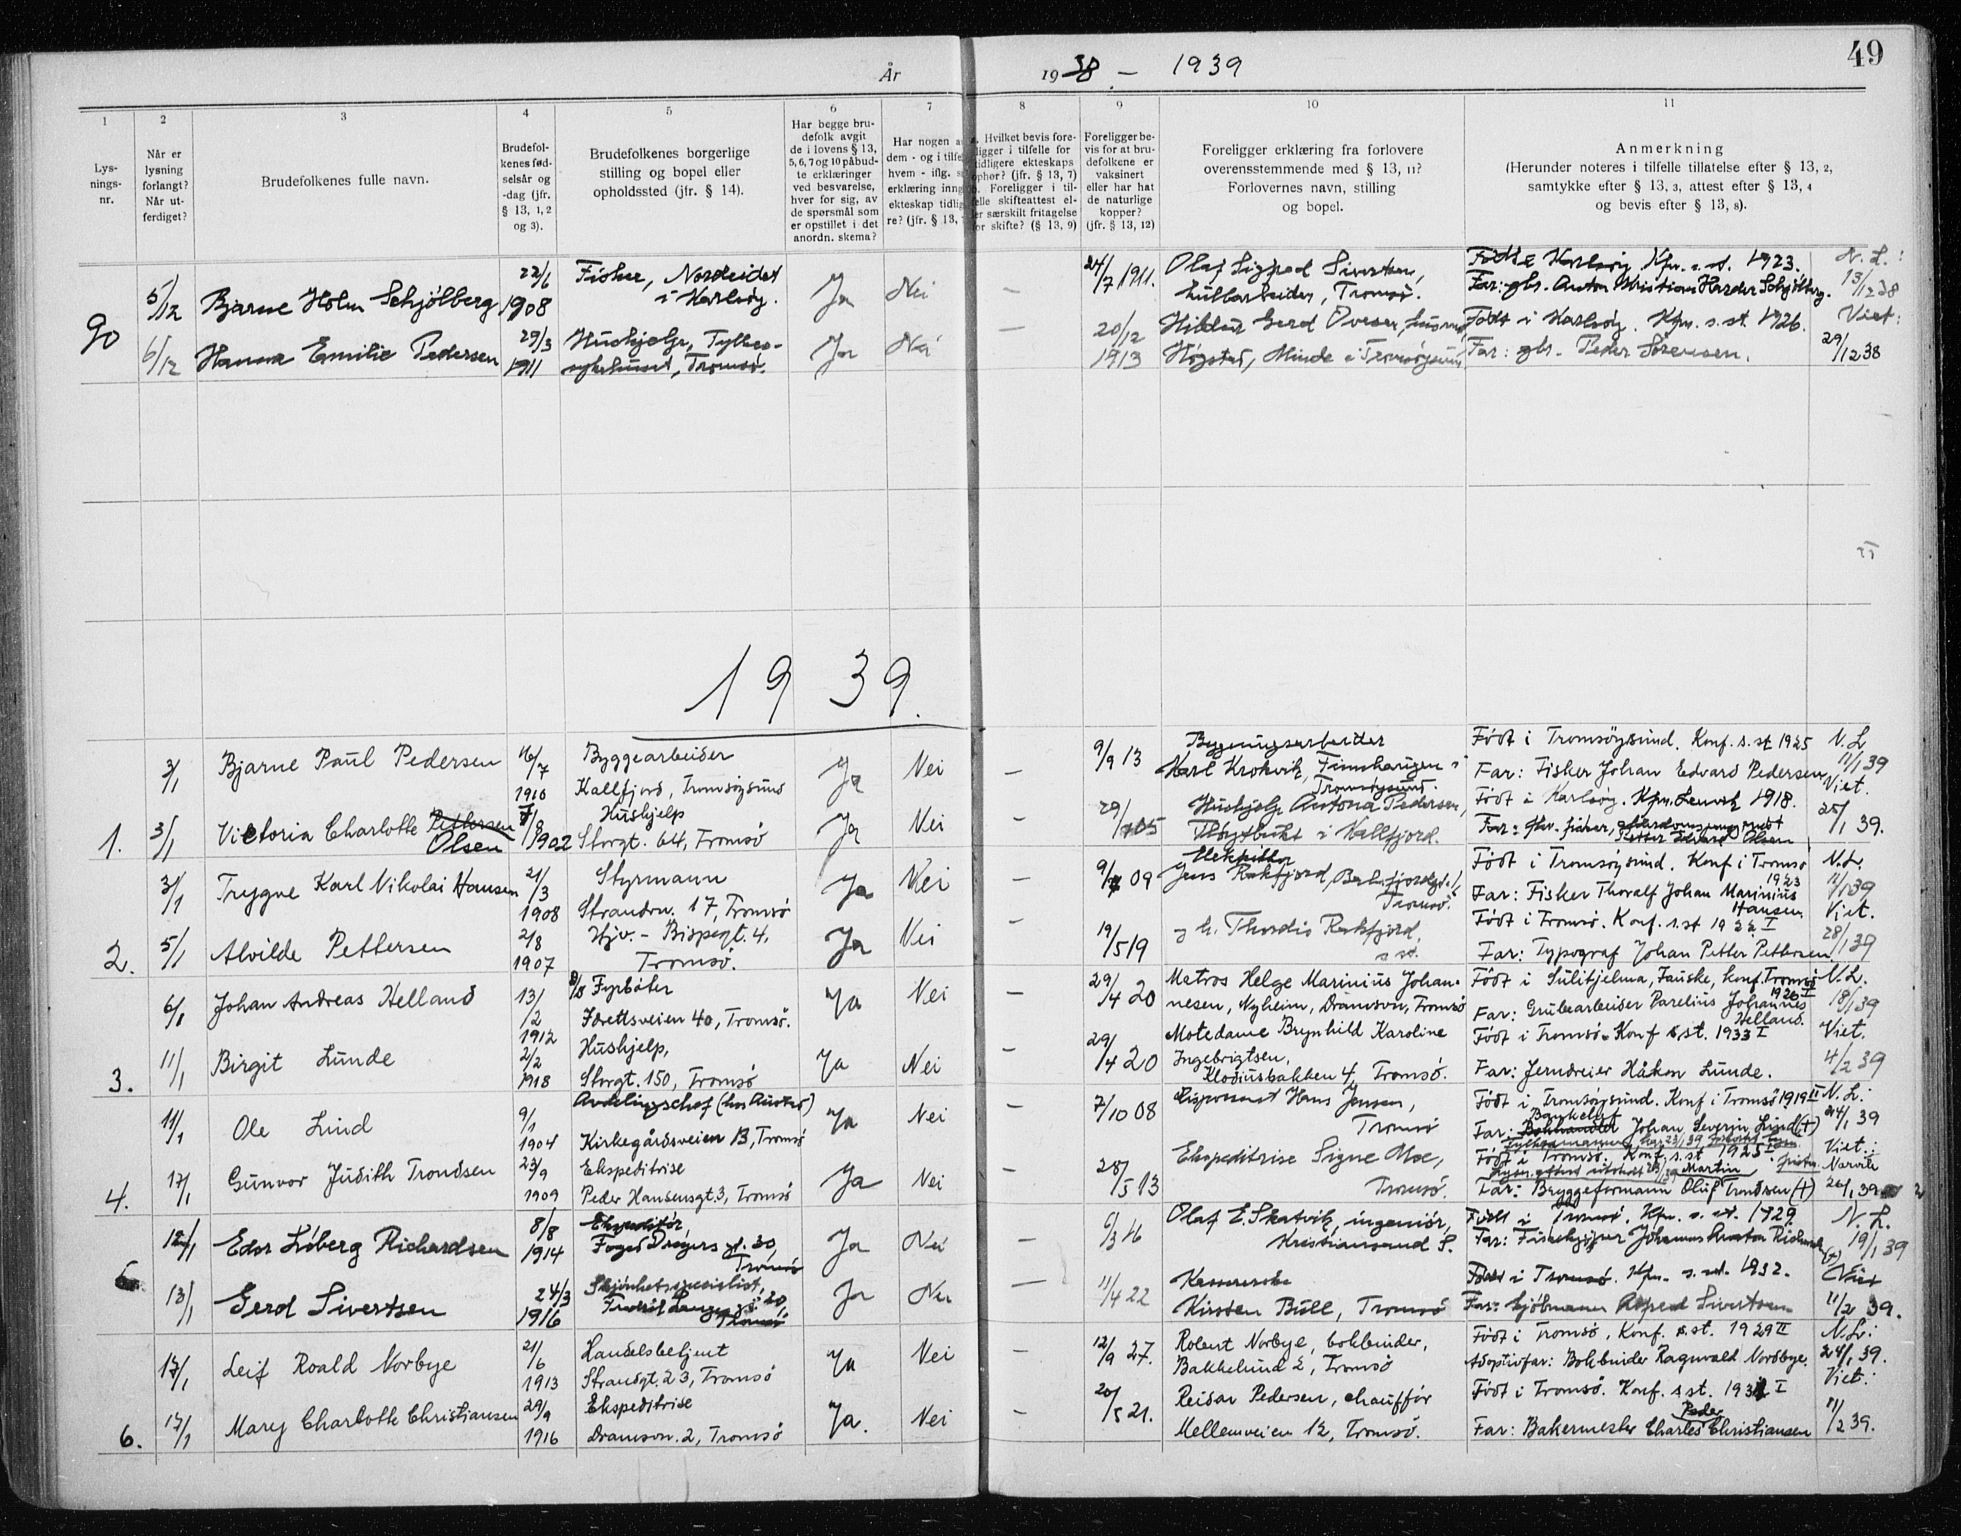 År 1938 – 1939
49
1 2 3 4 5 6 7 8 9 10 11
Lys-
nings-
nr.
Når er
lysning
forlangt?
Når ut-
ferdiget?
Brudefolkenes fulle navn.
Brudefol-
kenes fød-
selsår og
-dag (jfr.
§ 13, 1, 2
og 3).
Brudefolkenes borgerlige
stilling og bopel eller
opholdssted (jfr. § 14).
Har begge bru-
defolk avgit
de i lovens § 13,
5, 6, 7 og 10 påbud-
te erklæringer
ved besvarelse,
hver for sig, av
de spørsmål som
er opstillet i det
anordn. skema?
Har nogen a
dem - og i tilfe
hvem - iflg. s
erklæring inng
ekteskap tidlig
re? (jfr. § 13,
Hvilket bevis fore-
ligger i tilfelle for
tidligere ekteskaps
ophør? (jfr. § 13, 7)
b. Foreligger i til-
felle skifteattest el-
er særskilt fritagelse
for skifte? (§ 13, 9)
Foreligger be-
vis for at bru-
defolkene er
vaksinert
eller har hat
de naturlige
kopper?
(jfr. § 13, 12)
Foreligger erklæring fra forlovere
overensstemmende med § 13, 11?
Forlovernes navn, stilling
og bopel.
Anmerkning
(Herunder noteres i tilfelle tillatelse efter § 13, 2,
samtykke efter § 13, 3, attest efter § 13, 4
og bevis efter § 13, 8).
90
5/12 Bjarne Holm Schjölberg 22/6 1908 Fisker, Nordeidet
i Karlsöy. Ja Nei — 24/7 1911. Olaf Sigfred Sivertsen,
Tromsö. Födt i Karlsöy. Kfm. s. st. 1923.
Far: gbr. Anton Kristian Harder Schjölberg. N. L.: 13/12 38
6/12 Hanna Emilie Pedersen 29/3 1911 Hushjelp,
Tromsö. Ja Nei — 20/12 1913 Hildur Gerd Ovesen,
Högstad, Minde i Tromsöysund Födt i Karlsöy. Kfm. s. st. 1926.
Far: gbr. Peder Sörensen. Viet: 29/12 38
1939.
3/1 Bjarne Paul Pedersen 16/7 1910 Byggearbeider
Kallfjord, Tromsöysund Ja Nei — 9/9 13 Bygningsarbeider
Karl Krokvik, Finnhaugen i
Tromsöysund. Födt i Tromsöysund. Konf. s. st 1925
Far: Fisker Johan Edvard Pedersen N. L. 11/1 39
1. 3/1 Victoria Charlotte Pettersen
Olsen 7/8 1902 Hushjelp
Storgt. 64, Tromsö Ja Nei — Hushjelp Antona Pedersen,
i Kallfjord. Födt i Karlsöy. Kfm. Lenvik 1918.
Far: fisker,
Petter Edvard Olsen Viet. 25/1 39.
3/1 Trygve Karl Nikolai Hansen 21/3 1908 Styrmann
Strandv. 17, Tromsö Ja Nei — 09 Elektriker
Jens Rakfjord,
Tromsö. Födt i Tromsöysund. Konf i Tromsö
1923
Far: Fisker Thoralf Johan Marinius
Hansen N.L. 11/1 39
2. 5/1 Alvilde Pettersen 2/8 1907 Hjv. – Bispegt. 4,
Tromsö. Ja Nei — 19/5 19 Thordis Rakfjord,
s st. Födt i Tromsö. Konf. s. st 1922 I
Far: Typograf Johan Petter Pettersen Viet. 28/1 39
6/1 Johan Andreas Helland 13/2 1912 Fyrböter
Idrettsveien 40, Tromsö. Ja Nei — 29/4 20 Matros Helge Marinius Johan-
nesen, Nyheim, Dramsvn, Tromsö Födt i Sulitjelma, Fauske, konf. Tromsö
1926 I
Far: Grubearbeider Parelius Johannes
Helland. N.L. 18/1 39
3. 11/1 Birgit Lunde 2/2 1918 Hushjelp,
Storgt. 150, Tromsö Ja Nei — 29/4 20 Motedame Brynhild Karoline
Ingebrigtsen,
Klodiusbakken 4, Tromsö. Födt i Tromsö. Konf s. st. 1933 I
Far: Jerndreier Håkon Lunde. Viet. 4/2 39
11/1 Ole Lind 9/1 1904 Avdelingschef
Kirkegårdsveien 13, Tromsö Ja Nei — 7/10 08 Disponent Hans Jensen,
Tromsö Födt i Tromsöysund. Konf i Tromsö 1919 II
Far: Bokhandler Johan Severin Lind (†) N. L: 24/1 39
4. 17/1 Gunvor Judith Trondsen 23/9 1909 Ekspeditrise
Peder Hansensgt. 3, Tromsö Ja Nei — 28/5 13 Ekspeditrise Signe Moe,
Tromsö. Födt i Tromsö. Konf. s. st 1925 I
Martin
Far: Bryggeformann Oluf Trondsen (†) Viet: Narvik 26/1 39
12/1 Edor Löberg Richardsen 8/8 1914 Ekspeditör,
Foged Dreyers gt. 30,
Tromsö Ja Nei — 6/3 16 Olaf E. Skatvik, ingeniör,
Kristiansand S. Födt i Tromsö. Kfm. s. st. 1929.
Far: N. L. 19/1 39
13/1 Gerd Sivertsen 24/3 1916 Skjönhetsspesialist,
Fredrik Langes gt. 20,
Tromsö Ja Nei — 11/4 22 Kassererske
Kirsten Bull, Tromsö Födt i Tromsö. Kfm. s. st. 1932.
Far: Sjömann Sivertsen Viet 11/2 39.
17/1 Leif Roald Norbye 21/6 1913 Handelsbetjent
Strandgt. 23, Tromsö Ja Nei — 12/9 27. Robert Norbye, bokbinder,
Bakkelund 2, Tromsö Födt i Tromsö, Konf. s. st. 1929 II
Adoptivfar: Bokbinder Ragnvald Nordbye. N.L: 24/1 39.
6. 17/1 Mary Charlotte Christiansen 29/9 1916 Ekspeditrise
Dramsvn. 2, Tromsö Ja. Nei — 20/5 21. Reidar Pedersen, chafför
Mellemveien 12, Tromsö. Födt i Tromsö. Konf. s. st. 1931 I
Peder
Far: Bakermester Charles Christiansen Viet: 11/2 39.